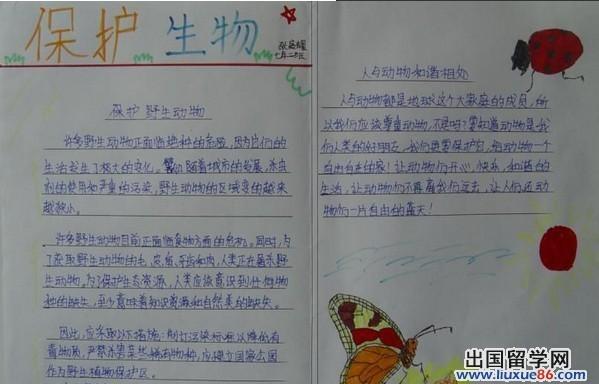 保护生物
七年二班
保护野生动物
许多野生动物正面临绝种的危险,因为它们的
生活发生了极大的变化。随着城市的发展,杀虫
剂的使用和严重的污染,野生动物的区域变的越来
越狭小。
许多野生动物目前正面临食物方面的危机。同时,为
了获取野生动物的毛、皮、角、牙齿和肉,人类正在屠杀野
生动物。为了保护生态资源,人类应该意识到任何物
种的缺失,至少意味着知识资源和自然美的缺失。
因此,应采取以下措施:制订污染标准以降低有
毒物质,严禁杀害某些稀有物种,应建立国家公园
作为野生植物保护区。
人与动物和谐相处
人与动物都是地球这个大家庭的成员,所
以我们应该尊重动物,不是吗?要知道动物是我
们人类的好朋友,我们要保护它,给动物一个
自由自在的家!让动物们开心,快乐,和谐的
生活,让动物们不再离我们远去,让人们还动
物们一片自由的蓝天!
出国留学网
www.liuxue86.com